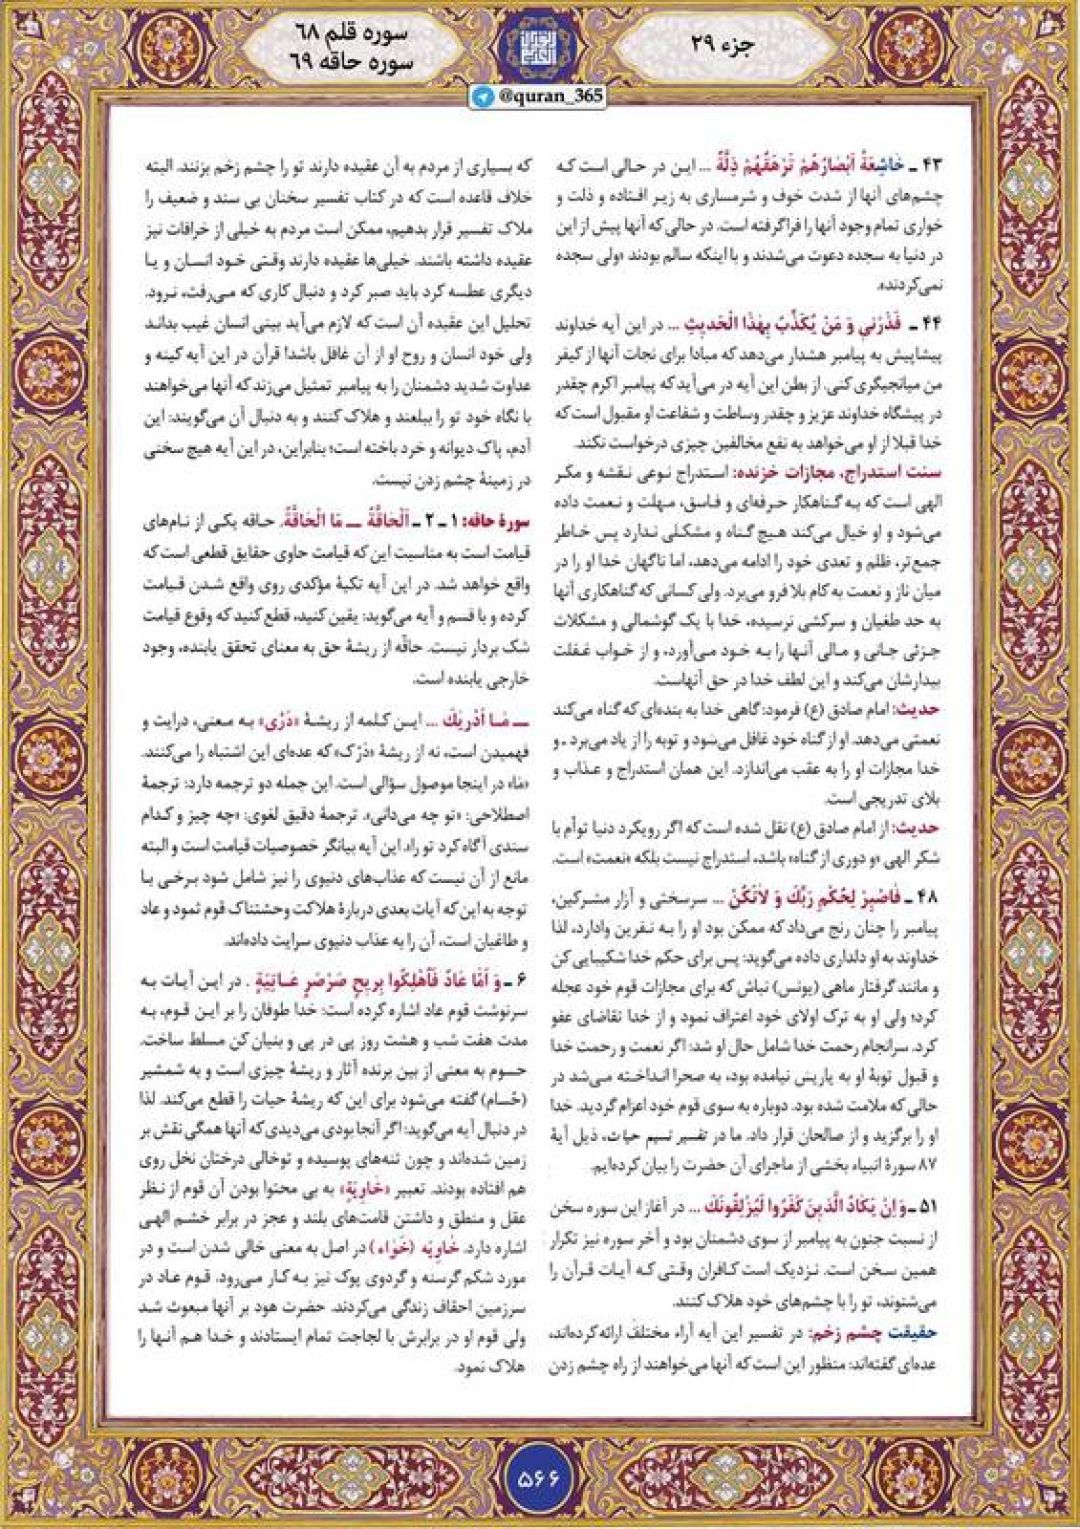 جزء ۲۹
سوره قلم ۶۸
سوره حاقه ۶۹
@quran_365
۴۳ ـ خَاشِعَةً اَبْصَارُهُمْ تَرْهَقُهُمْ ذِلَّةٌ ... این در حالی است که
چشم‌های آنها از شدت خوف و شرمساری به زیر افتاده و ذلت و
خواری تمام وجود آنها را فراگرفته است. در حالی که آنها پیش از این
در دنیا به سجده دعوت می‌شدند و با اینکه سالم بودند «ولی سجده
نمی‌کردند».
۴۴ ـ فَذَرْنِي وَ مَنْ يُكَذِّبُ بِهٰذَا الْحَديثِ ... در این آیه خداوند
پیشاپیش به پیامبر هشدار می‌دهد که مبادا برای نجات آنها از کیفر
من میانجیگری کنی. از بطن این آیه در می‌آید که پیامبر اکرم چقدر
در پیشگاه خداوند عزیز و چقدر وساطت و شفاعت او مقبول است که
خدا قبلا از او می‌خواهد به نفع مخالفین چیزی درخواست نکند.
سنت استدراج، مجازات خزنده: استدراج نوعی نقشه و مکر
الهی است که به گناهکار حرفه‌ای و فاسق، مهلت و نعمت داده
می‌شود و او خیال می‌کند هیچ گناه و مشکلی ندارد پس خاطر
جمع‌تر، ظلم و تعدی خود را ادامه می‌دهد، اما ناگهان خدا او را در
میان ناز و نعمت به کام بلا فرو می‌برد. ولی کسانی که گناهکاری آنها
به حد طغیان و سرکشی نرسیده، خدا با یک گوشمالی و مشکلات
جزئی جانی و مالی آنها را به خود می‌آورد، و از خواب غفلت
بیدارشان می‌کند و این لطف خدا در حق آنهاست.
حدیث: امام صادق (ع) فرمود: گاهی خدا به بنده‌ای که گناه می‌کند
نعمتی می‌دهد. او از گناه خود غافل می‌شود و توبه را از یاد می‌برد ـ و
خدا مجازات او را به عقب می‌اندازد. این همان استدراج و عذاب و
بلای تدریجی است.
حدیث: از امام صادق (ع) نقل شده است که اگر رویکرد دنیا توأم با
شکر الهی «و دوری از گناه» باشد، استدراج نیست بلکه «نعمت» است.
۴۸ ـ فَاصْبِرْ لِحُكْمِ رَبِّكَ وَ لَاتَكُنْ ... سرسختی و آزار مشرکین،
پیامبر را چنان رنج می‌داد که ممکن بود او را به نفرین وادارد، لذا
خداوند به او دلداری داده می‌گوید: پس برای حکم خدا شکیبایی کن
و مانند گرفتار ماهی (یونس) نباش که برای مجازات قوم خود عجله
کرد؛ ولی او به ترک اولای خود اعتراف نمود و از خدا تقاضای عفو
کرد. سرانجام رحمت خدا شامل حال او شد: اگر نعمت و رحمت خدا
و قبول توبهٔ او به یاریش نیامده بود، به صحرا انداخته می‌شد در
حالی که ملامت شده بود. دوباره به سوی قوم خود اعزام گردید. خدا
او را برگزید و از صالحان قرار داد. ما در تفسیر نسیم حیات، ذیل آیهٔ
۸۷ سورهٔ انبیاء بخشی از ماجرای آن حضرت را بیان کرده‌ایم.
۵۱ ـ وَ اِنْ يَكَادُ الَّذِينَ كَفَرُوا لَيُزْلِقُونَكَ ... در آغاز این سوره سخن
از نسبت جنون به پیامبر از سوی دشمنان بود و آخر سوره نیز تکرار
همین سخن است. نزدیک است کافران وقتی که آیات قرآن را
می‌شنوند، تو را با چشم‌های خود هلاک کنند.
حقیقت چشم زخم: در تفسیر این آیه آراء مختلف ارائه کرده‌اند،
عده‌ای گفته‌اند: منظور این است که آنها می‌خواهند از راه چشم زدن
که بسیاری از مردم به آن عقیده دارند تو را چشم زخم بزنند. البته
خلاف قاعده است که در کتاب تفسیر سخنان بی سند و ضعیف را
ملاک تفسیر قرار بدهیم، ممکن است مردم به خیلی از خرافات نیز
عقیده داشته باشند. خیلی‌ها عقیده دارند وقتی خود انسان و یا
دیگری عطسه کرد باید صبر کرد و دنبال کاری که می‌رفت، نرود.
تحلیل این عقیده آن است که لازم می‌آید بینی انسان غیب بداند
ولی خود انسان و روح او از آن غافل باشد! قرآن در این آیه کینه و
عداوت شدید دشمنان را به پیامبر تمثیل می‌زند که آنها می‌خواهند
با نگاه خود تو را ببلعند و هلاک کنند و به دنبال آن می‌گویند: این
آدم، پاک دیوانه و خرد باخته است؛ بنابراین، در این آیه هیچ سخنی
در زمینهٔ چشم زدن نیست.
سورهٔ حاقه: ۱ ـ ۲ ـ اَلْحَاقَّةُ ـ مَا الْحَاقَّةُ. حاقه یکی از نام‌های
قیامت است به مناسبت این که قیامت حاوی حقایق قطعی است که
واقع خواهد شد. در این آیه تکیهٔ مؤکدی روی واقع شدن قیامت
کرده و با قسم و آیه می‌گوید: یقین کنید، قطع کنید که وقوع قیامت
شک بردار نیست. حاقّه از ریشهٔ حق به معنای تحقق یابنده، وجود
خارجی یابنده است.
ـ مَا اَدْرِيكَ ... این کلمه از ریشهٔ «دَرْی» به معنی، درایت و
فهمیدن است، نه از ریشهٔ «دَرْک» که عده‌ای این اشتباه را می‌کنند.
«مَا» در اینجا موصول سؤالی است. این جمله دو ترجمه دارد: ترجمهٔ
اصطلاحی: «تو چه می‌دانی». ترجمهٔ دقیق لغوی: «چه چیز و کدام
سندی آگاه کرد تو را». این آیه بیانگر خصوصیات قیامت است و البته
مانع از آن نیست که عذاب‌های دنیوی را نیز شامل شود برخی با
توجه به این که آیات بعدی دربارهٔ هلاکت وحشتناک قوم ثمود و عاد
و طاغیان است، آن را به عذاب دنیوی سرایت داده‌اند.
۶ ـ وَ اَمَّا عَادٌ فَاُهْلِكُوا بِرِيحٍ صَرْصَرٍ عَاتِيَةٍ . در این آیات به
سرنوشت قوم عاد اشاره کرده است: خدا طوفان را بر این قوم، به
مدت هفت شب و هشت روز پی در پی و بنیان کن مسلط ساخت.
حسوم به معنی از بین برنده آثار و ریشهٔ چیزی است و به شمشیر
(حُسام) گفته می‌شود برای این که ریشهٔ حیات را قطع می‌کند. لذا
در دنبال آیه می‌گوید: اگر آنجا بودی می‌دیدی که آنها همگی نقش بر
زمین شده‌اند و چون تنه‌های پوسیده و توخالی درختان نخل روی
هم افتاده بودند. تعبیر «خَاوِيَةٍ» به بی محتوا بودن آن قوم از نظر
عقل و منطق و داشتن قامت‌های بلند و عجز در برابر خشم الهی
اشاره دارد. خاویه (خَواء) در اصل به معنی خالی شدن است و در
مورد شکم گرسنه و گردوی پوک نیز به کار می‌رود. قوم عاد در
سرزمین احقاف زندگی می‌کردند. حضرت هود بر آنها مبعوث شد
ولی قوم او در برابرش با لجاجت تمام ایستادند و خدا هم آنها را
هلاک نمود.
۵۶۶